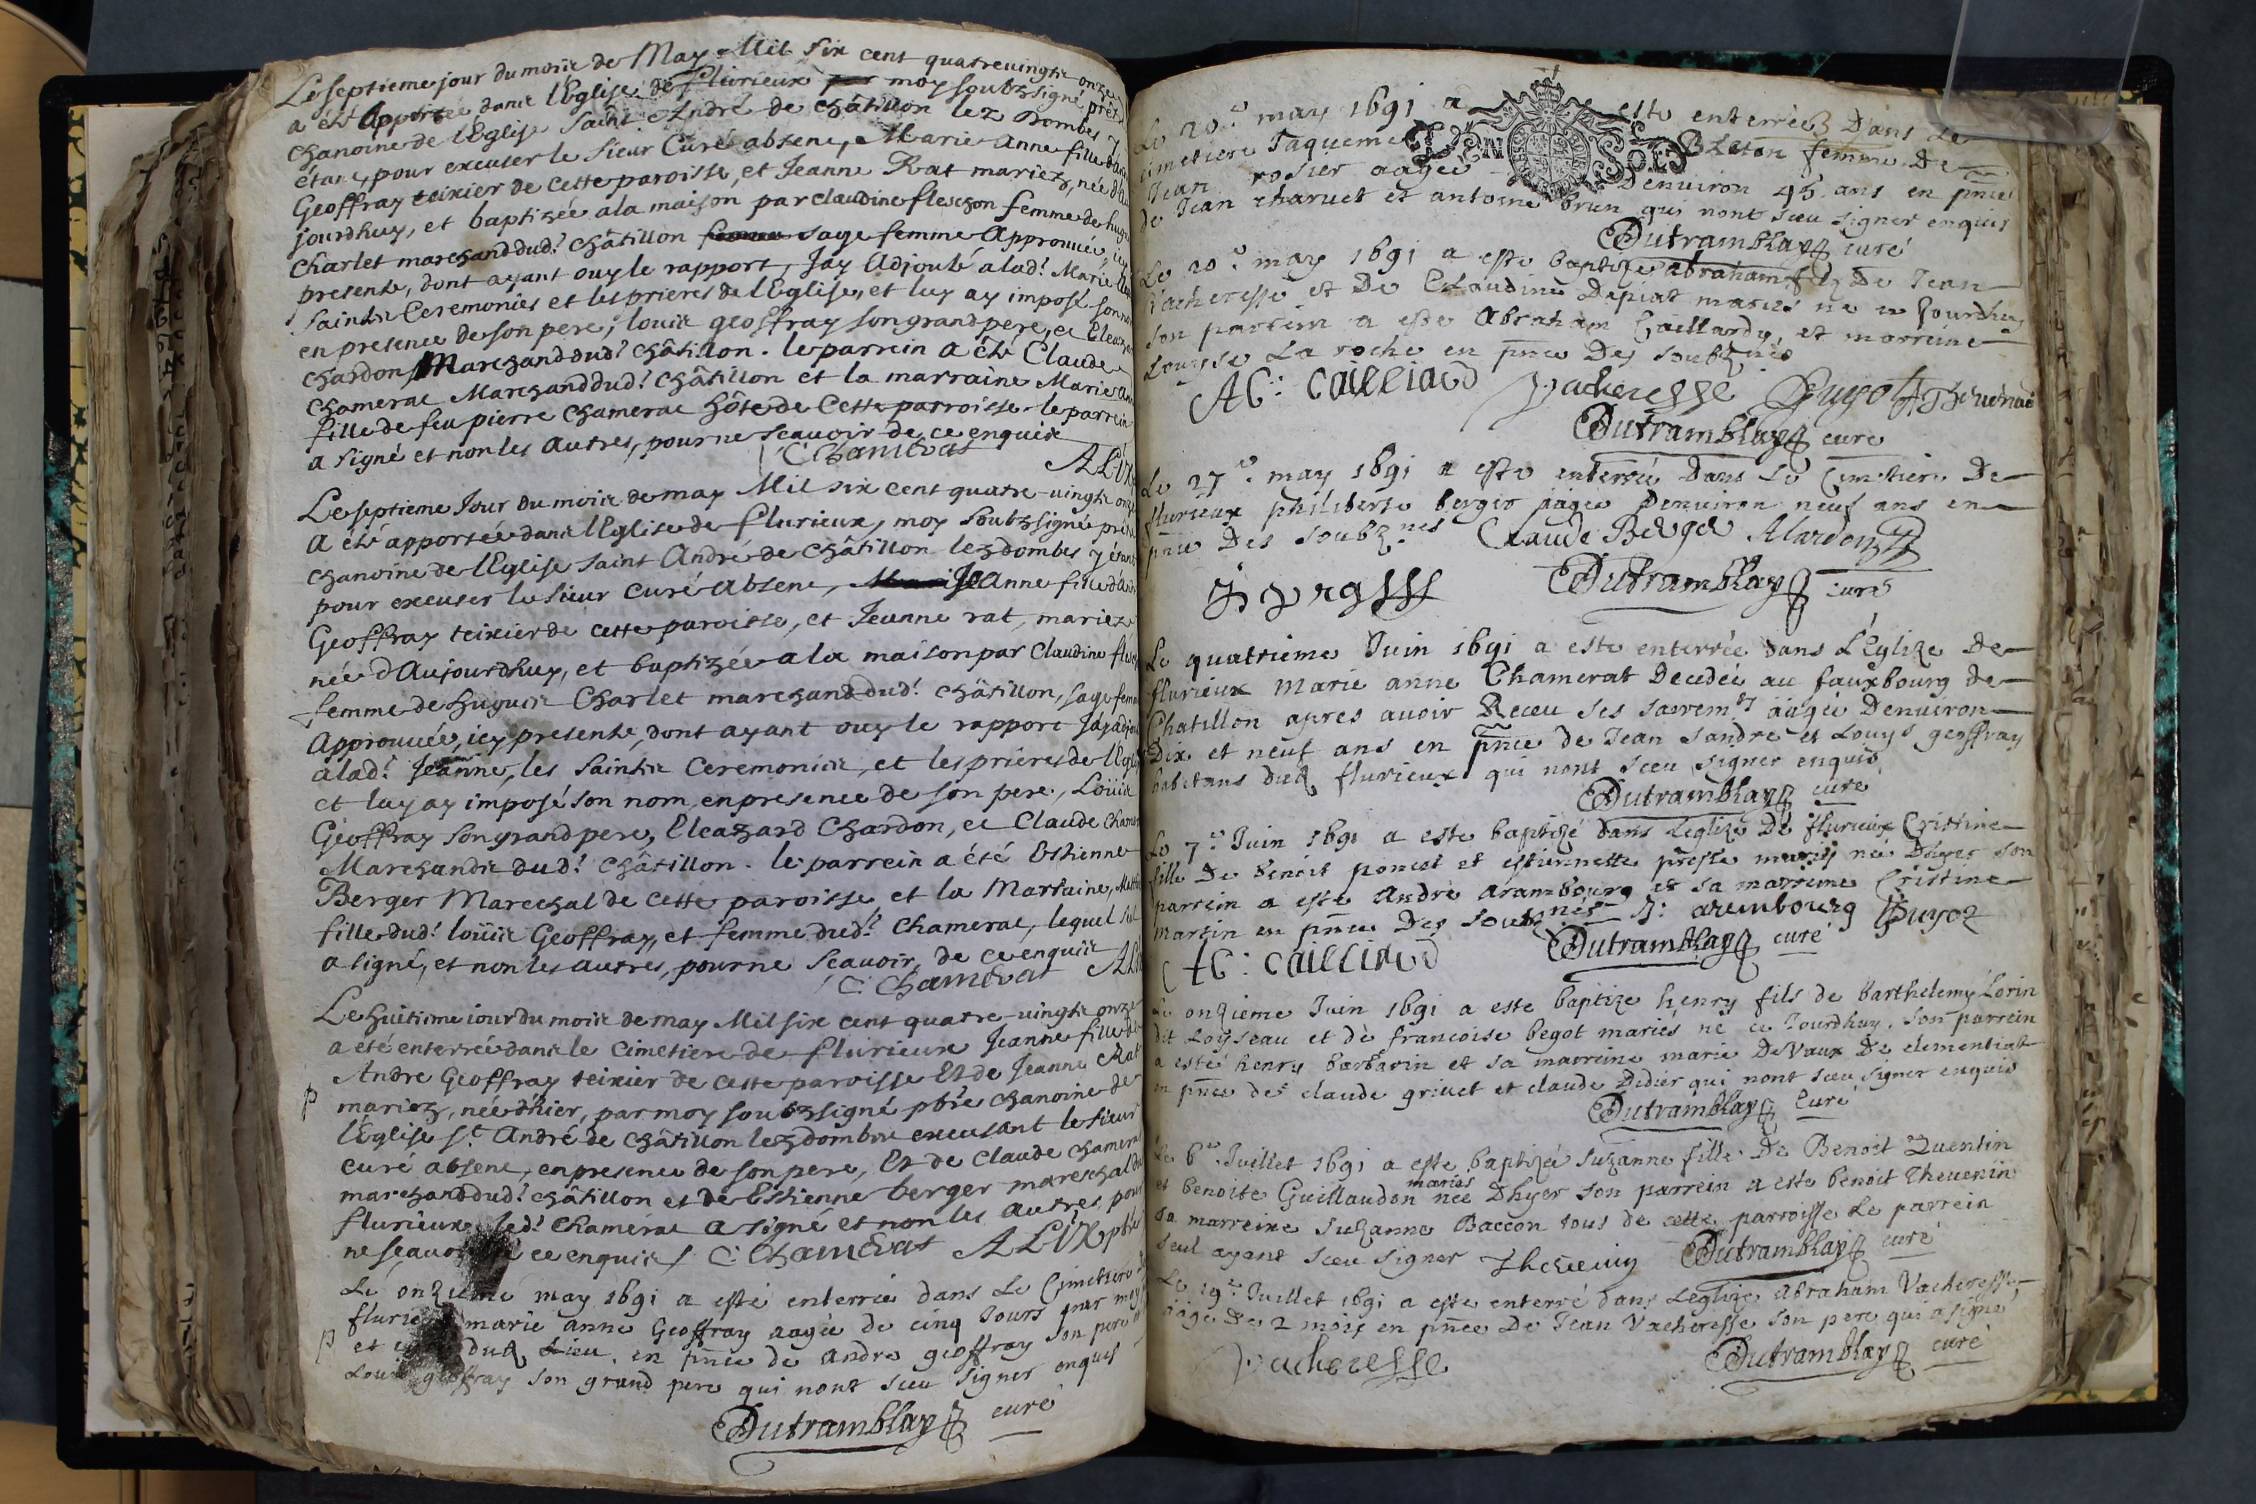 Le septieme jour du mois de May Mil six cent quatrevingts onze
a été Apportée dans l'Eglise de Flurieux par moy soubzsigné prêt
chanoine de l'Eglise Saint André de Châtillon lez Dombes y
étant, pour excuser le Sieur Curé absent, Marie Anne fille d'An
Geoffray teixier de cette paroisse, et Jeanne Rat mariez, née d'au
jourdhuy, et baptizée a la maison par claudine fleschon femme de hugu
Charlet marchand dud.t Châtillon femme sage femme Approuuée, icy
presente, dont ayant ouy le rapport, Jay Adjouté a lad.t Marie Anne
Saintes Ceremonies et les prieres de l'Eglise, et luy ay imposé son nom
en presence de son pere, louis geoffray son grand pere, et Eleazar
chardon, Marchand dud.t Châtillon. le parrein a été Claude
chamerat Marchand dud.t Châtillon et la marraine Marie Ann
fille de feu pierre chamerat hôte de Cette parroisse. le parrein
a signé et non les autres, pour ne scauoir de ce enquis
C Chamerat ALIX
Le septieme Jour du mois de may Mil six cent quatre-uingts onze
a été apportée dans l'Eglise de flurieux, moy soubzsigné prêt
chanoine de l'Eglise Saint André de Châtillon lez dombes y étant
pour excuser le sieur curé absent, Marie Jeanne fille d'And
Geoffray teixier de cette paroisse, et Jeanne rat, mariez
née d'Aujourdhuy, et baptizée a la maison par Claudine fles
femme de hugues Charlet marchand dud.t Châtillon, sage femme
Approuuée, icy presente, dont ayant ouy le rapport Jay adjou
a lad.t Jeanne, les Saintes Ceremonies, et les prieres de l'Egl
et luy ay imposé son nom, en presence de son pere, Loüis
Geoffray son grand pere, Eleazard Chardon, et Claude Chamer
Marchands dud.t Châtillon. le parrein a été Estienne
Berger Marechal de cette paroisse, et la Marraine,
fille dud.t loüis Geoffray, et femme dud.t Chamerat, lequel seul
a signé, et non les autres, pour ne scauoir, de ce enquis
C: Chamerat AL
Le huitieme iour du mois de may Mil six cent quatre-uingts onze
a eté enterrée dans le Cimetiere de flurieux Jeanne fille de
Andre Geoffray teixier de cette paroisse Et de Jeanne Rat
p mariez, née d'hier, par moy soubzsigné pbre chanoine de
l'Eglise s.t André de Châtillon lez dombes excusant le sieur
curé absent, en presence de son pere, Et de Claude Chamerat
marchand dud.t Châtillon et de Estienne berger mareschal du
flurieux, led.t Chamerat a signé et non les autres pour
ne scauoir ce enquis C: Chamerat ALIX pbre
Le onzieme may 1691 a esté enterrée dans le Cimetiere
flurieux marie anne Geoffray aagée de cinq Jours par moy
p et dud lieu. en pñce de andre geoffray son pere
Louis geoffray son grand pere qui nont sceu signer enquis
Dutramblay curé
Le 20.e may 1691 a este enterrée Dans Le
cimetiere Jaqueme Breton femme De
Jean rosier aagée Denuiron 45 ans en pñce
de Jean charuet et antoine brun qui nont sceu signer enquis
Dutramblay curé
Le 20.e may 1691 a este baptize abraham fils De Jean
Vacheresse et De Claudine Depiat mariés né ce Jourdhuy
son parrein a este Abraham Caillard, et marreine
Louyse La roche en pñce Des soubz.nés
AC: CAILLIARD Vacheresse Guyot A Theuenard
Dutramblay curé
Le 27.e may 1691 a este enterré Dans Le Cimetiere De
flurieux philiberte berger aagée Denuiron neuf ans en
pñce Des soubz.nes Claude Berger Alardon
Dutramblay curé
Le quatrieme Juin 1691 a este enterrée dans L'Eglize De
flurieux Marie anne Chamerat Decedée au fauxbourg de
Chatillon apres auoir Receu ses sacrem.ts aagée Denuiron
Dix et neuf ans en pñce de Jean Sandre et Louys geoffray
habitans dud flurieux qui nont sceu signer enquis
Dutramblay curé
Le 7.e Juin 1691 a este baptizé dans Leglize De flurieux Cristine
fille De benoit poncet et estiennette preste mariés née Dhyer son
parrein a este andré arambourg et sa marreine Cristine
martin en pñce Des soubz.nés A: arembourg Guyot
AC: CAILLIARD Dutramblay curé
Le onzieme Juin 1691 a este baptize henry fils de barthelemy Lorin
dit Loyseau et de francoise begot mariés né ce Jourdhuy. son parrein
a esté henry barbarin et sa marreine marie De Vaux De clementiat
en pñce des claude griuet et claude Didier qui nont sceu signer enquis
Dutramblay Curé
Le 6.e Juillet 1691 a este baptizée suzanne fille De Benoit Quentin
et benoite Guillaudon mariés née Dhyer son parrein a este benoit Theuenin
sa marreine Suzanne Baccon tous de cette parroisse Le parrein
seul ayant sceu signer Theuenin Dutramblay curé
Le 19.e Juillet 1691 a este enterré dans Leglize abraham Vacheresse,
aagé De 2 mois en pñce De Jean Vacheresse son pere qui a signé
Vacheresse Dutramblay curé